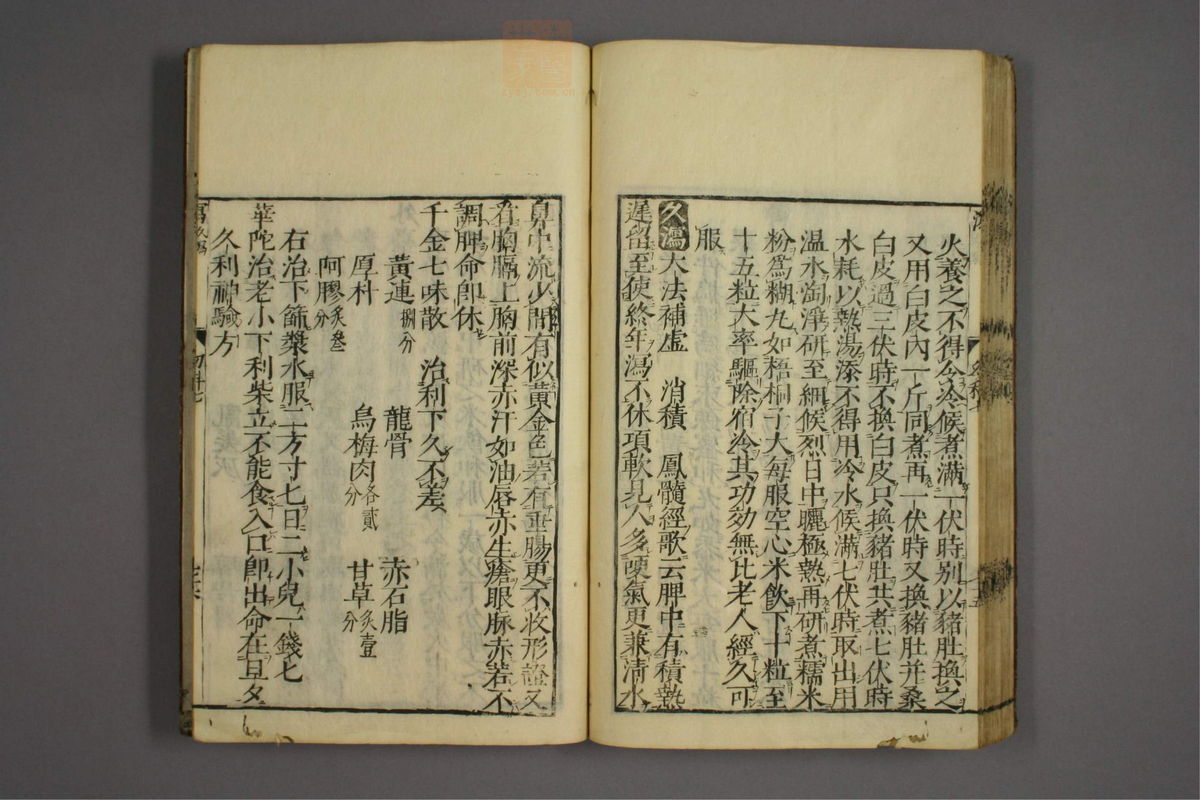 火養之不得令冷候煮滿一伏時别以豬肚換之
又用白皮內一斤同煮再一伏時又換豬肚并桑
白皮過三伏時不換白皮只換豬肚共煮七伏時
水耗以熱湯添不得用冷水候滿七伏時取出用
温水淘淨研至細候烈日中曬極熱再研煮糯米
粉爲糊丸如梧桐子大每服空心米飮下十粒至
十五粒大率驅除宿冷其功効無比老人經久可
服
久瀉大法補虛 消積 鳳髓經歌云脾中有積熱
遲留至使終年瀉不休項軟見人多哽氣更兼清水
鼻中流少間有似黃金色若有垂腸更不收形證又
看胸膈上胸前深赤汗如油唇赤生瘡眼脉赤若不
調脾命即休
千金七味散 治利下久不差
黃連捌分 龍骨 赤石脂
厚朴 烏梅肉各貳分 甘草炙壹分
阿膠炙叁分
右治下篩漿水服二方寸匕日二小兒一錢匕
華陀治老小下利柴立不能食入口即出命在旦夕
久利神驗方